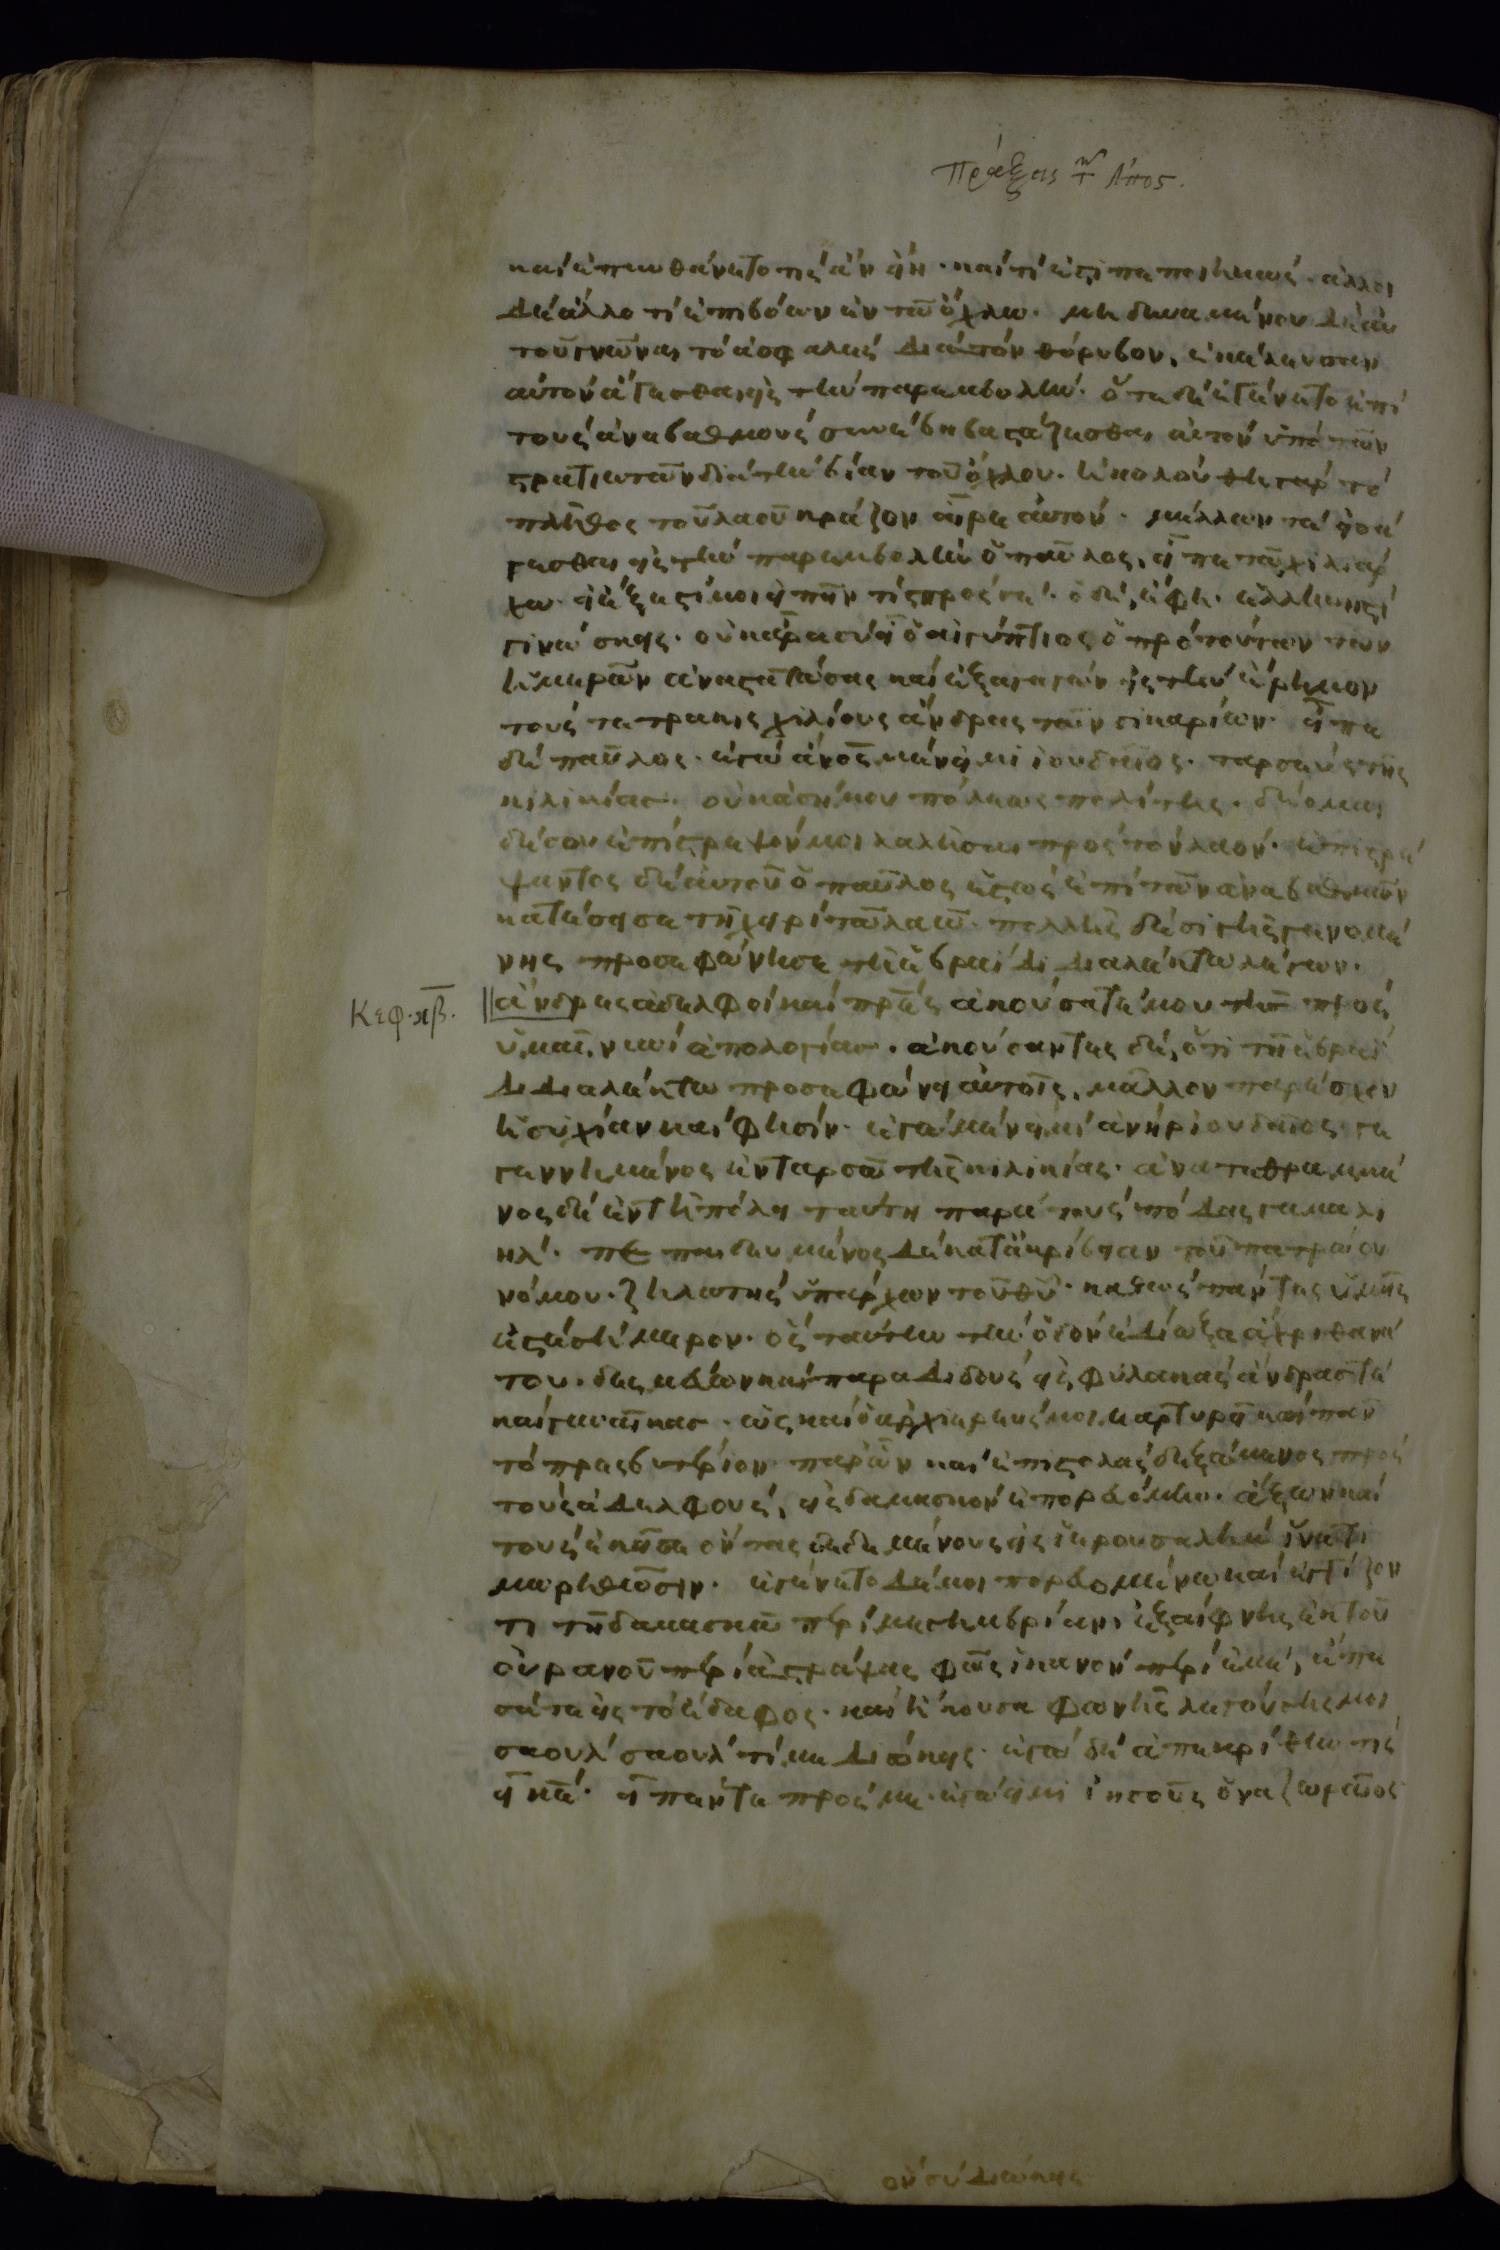 Πράξεις τῶν Ἀπος.
καὶ ἐπυνθάνετο τίς ἂν εἴη· καὶ τί ἐστι πεποιηκώς· ἄλλοι
δὲ ἄλλο τί ἐπιβόων ἐν τῶ ὄχλω· μὴ δυναμένου δὲ αὐ
τοῦ γνῶναι τὸ ἀσφαλὲς διὰ τὸν θόρυβον, ἐκέλευσεν
αὐτὸν ἄγεσθαι εἰς τὴν παρεμβολήν· ὅτε δὲ ἐγένετο ἐπὶ
τοὺς ἀναβαθμοὺς συνέβη βαστάζεσθαι αὐτὸν ὑπὸ τῶν
στρατιωτῶν διὰ τὴν βίαν τοῦ ὄχλου· ἠκολούθη γὰρ τὸ
πλῆθος τοῦ λαοῦ κράζον αἶρε αὐτόν· μέλλων τὲ εἰσά
γεσθαι εἰς τὴν παρεμβολὴν ὁ παῦλος, εἶπε τῶ χιλιάρ
χω· εἰ ἔξεστί μοι εἰπεῖν τί πρός σε· ὁ δὲ, ἔφη· ἑλληνιστὶ
γινώσκεις· οὐκ ἄρα σὺ εἶ ὁ αἰγύπτιος ὁ πρὸ τούτων τῶν
ἡμερῶν ἀναστατώσας καὶ ἐξαγαγὼν εἰς τὴν ἔρημον
τοὺς τετρακισχιλίους ἄνδρας τῶν σικαρίων· εἶπε
δὲ παῦλος· ἐγὼ ἄνος μέν εἰμι ἰουδαῖος· ταρσεὺς τῆς
κιλικίας· οὐκ ἀσήμου πόλεως πολίτης· δέομαι
δέ σου ἐπίστρεψόν μοι λαλῆσαι πρὸς τὸν λαόν· ἐπιστρέ
ψαντος δὲ αὐτοῦ ὁ παῦλος ἑστὼς ἐπὶ τῶν ἀναβαθμῶν
κατέσεισε τῆ χειρὶ τῶ λαῶ· πολλῆς δὲ σιγῆς γενομέ
νης προσεφώνησε τῆ ἑβραΐδι διαλέκτω λέγων·
Κεφ. κβ. ἄνδρες ἀδελφοὶ καὶ πρες ἀκούσατέ μου τῆς πρὸς
ὑμᾶς νυνὶ ἀπολογίας· ἀκούσαντες δὲ, ὅτι τῆ ἑβραΐ
δι διαλέκτω προσεφώνει αὐτοῖς, μᾶλλον παρέσχον
ἡσυχίαν καὶ φησίν· ἐγὼ μέν εἰμι ἀνὴρ ἰουδαῖος γε
γεννημένος ἐν ταρσῶ τῆς κιλικίας· ἀνατεθραμμέ
νος δὲ ἐν τῆ πόλει ταύτη παρὰ τοὺς πόδας γαμαλι
ήλ· πεπαιδευμένος δὲ κατ ἀκρίβειαν τοῦ πατρώου
νόμου· ζηλωτὴς ὑπάρχων τοῦ θυ· καθὼς πάντες ὑμεῖς
ἐστὲ σήμερον· ὃς ταύτην τὴν ὁδὸν ἐδίωξα ἄχρι θανά
του· δεσμεύων καὶ παραδιδοὺς εἰς φυλακὰς ἄνδρας τὲ
καὶ γυναῖκας· ὡς καὶ ὁ ἀρχιερεύς μοι μαρτυρεῖ καὶ πᾶν
τὸ πρεσβυτέριον παρ ὧν καὶ ἐπιστολὰς δεξάμενος πρὸς
τοὺς ἀδελφοὺς, εἰς δαμασκὸν ἐπορευόμην· ἄξων καὶ
τοὺς ἐκεῖσε ὄντας δεδεμένους εἰς ἱερουσαλὴμ ἵνα τι
μωρηθῶσιν· ἐγένετο δέ μοι πορευομένω καὶ ἐγγίζον
τι τῆ δαμασκῶ περὶ μεσημβρίαν, ἐξαίφνης ἐκ τοῦ
οὐρανοῦ περιαστράψας φῶς ἱκανὸν περὶ ἐμέ, ἔπε
σά τε εἰς τὸ ἔδαφος· καὶ ἤκουσα φωνῆς λεγούσης μοι
σαοὺλ σαοὺλ τί με διώκεις· ἐγὼ δὲ ἀπεκρίθην τίς
εἶ κε· εἶπέν τε πρός με· ἐγώ εἰμι ἰησοῦς ὁ ναζωραῖος
ὃν σὺ διώκεις